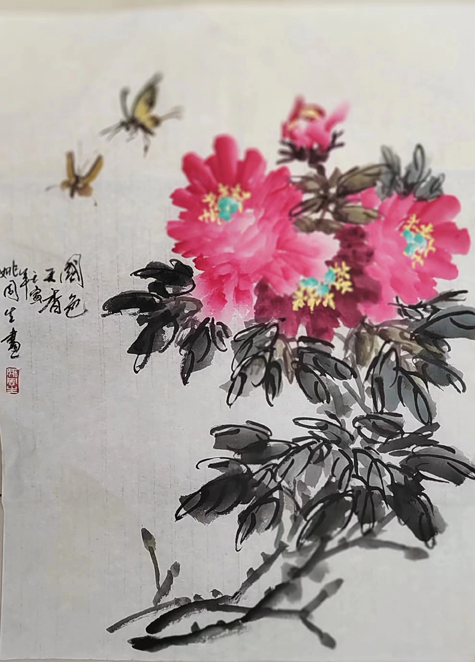 國色
天香
壬寅
年
姚国生畫